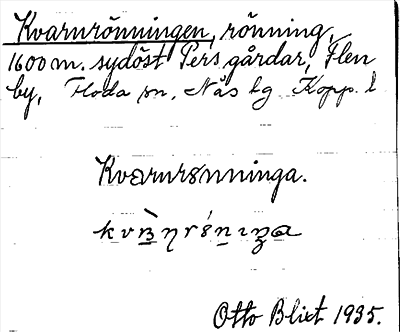 Kvarnrönningen, rönning,
1600 m. sydöst Pers gårdar, Flen
by, Floda sn, Nås hg Kopp. l
Kvarnrönninga.
Otto Blixt 1935.